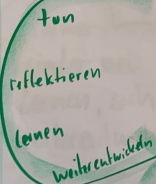 tun
reflektieren
lernen
weiterentwickeln